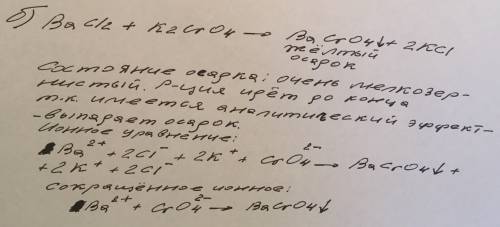 б) BaCl2 + K2CrO4 → BaCrO4↓ + 2KCl
жёлтый
осадок
Состояние осадка: очень мелкозер-
нистый. Р-ция идёт до конца
т.к. имеется аналитический эффект-
-выпадает осадок.
Ионное уравнение:
Ba²⁺ + 2Cl⁻ + 2K⁺ + CrO4²⁻ → BaCrO4↓ +
+ 2K⁺ + 2Cl⁻
сокращённое ионное:
Ba²⁺ + CrO4²⁻ → BaCrO4↓